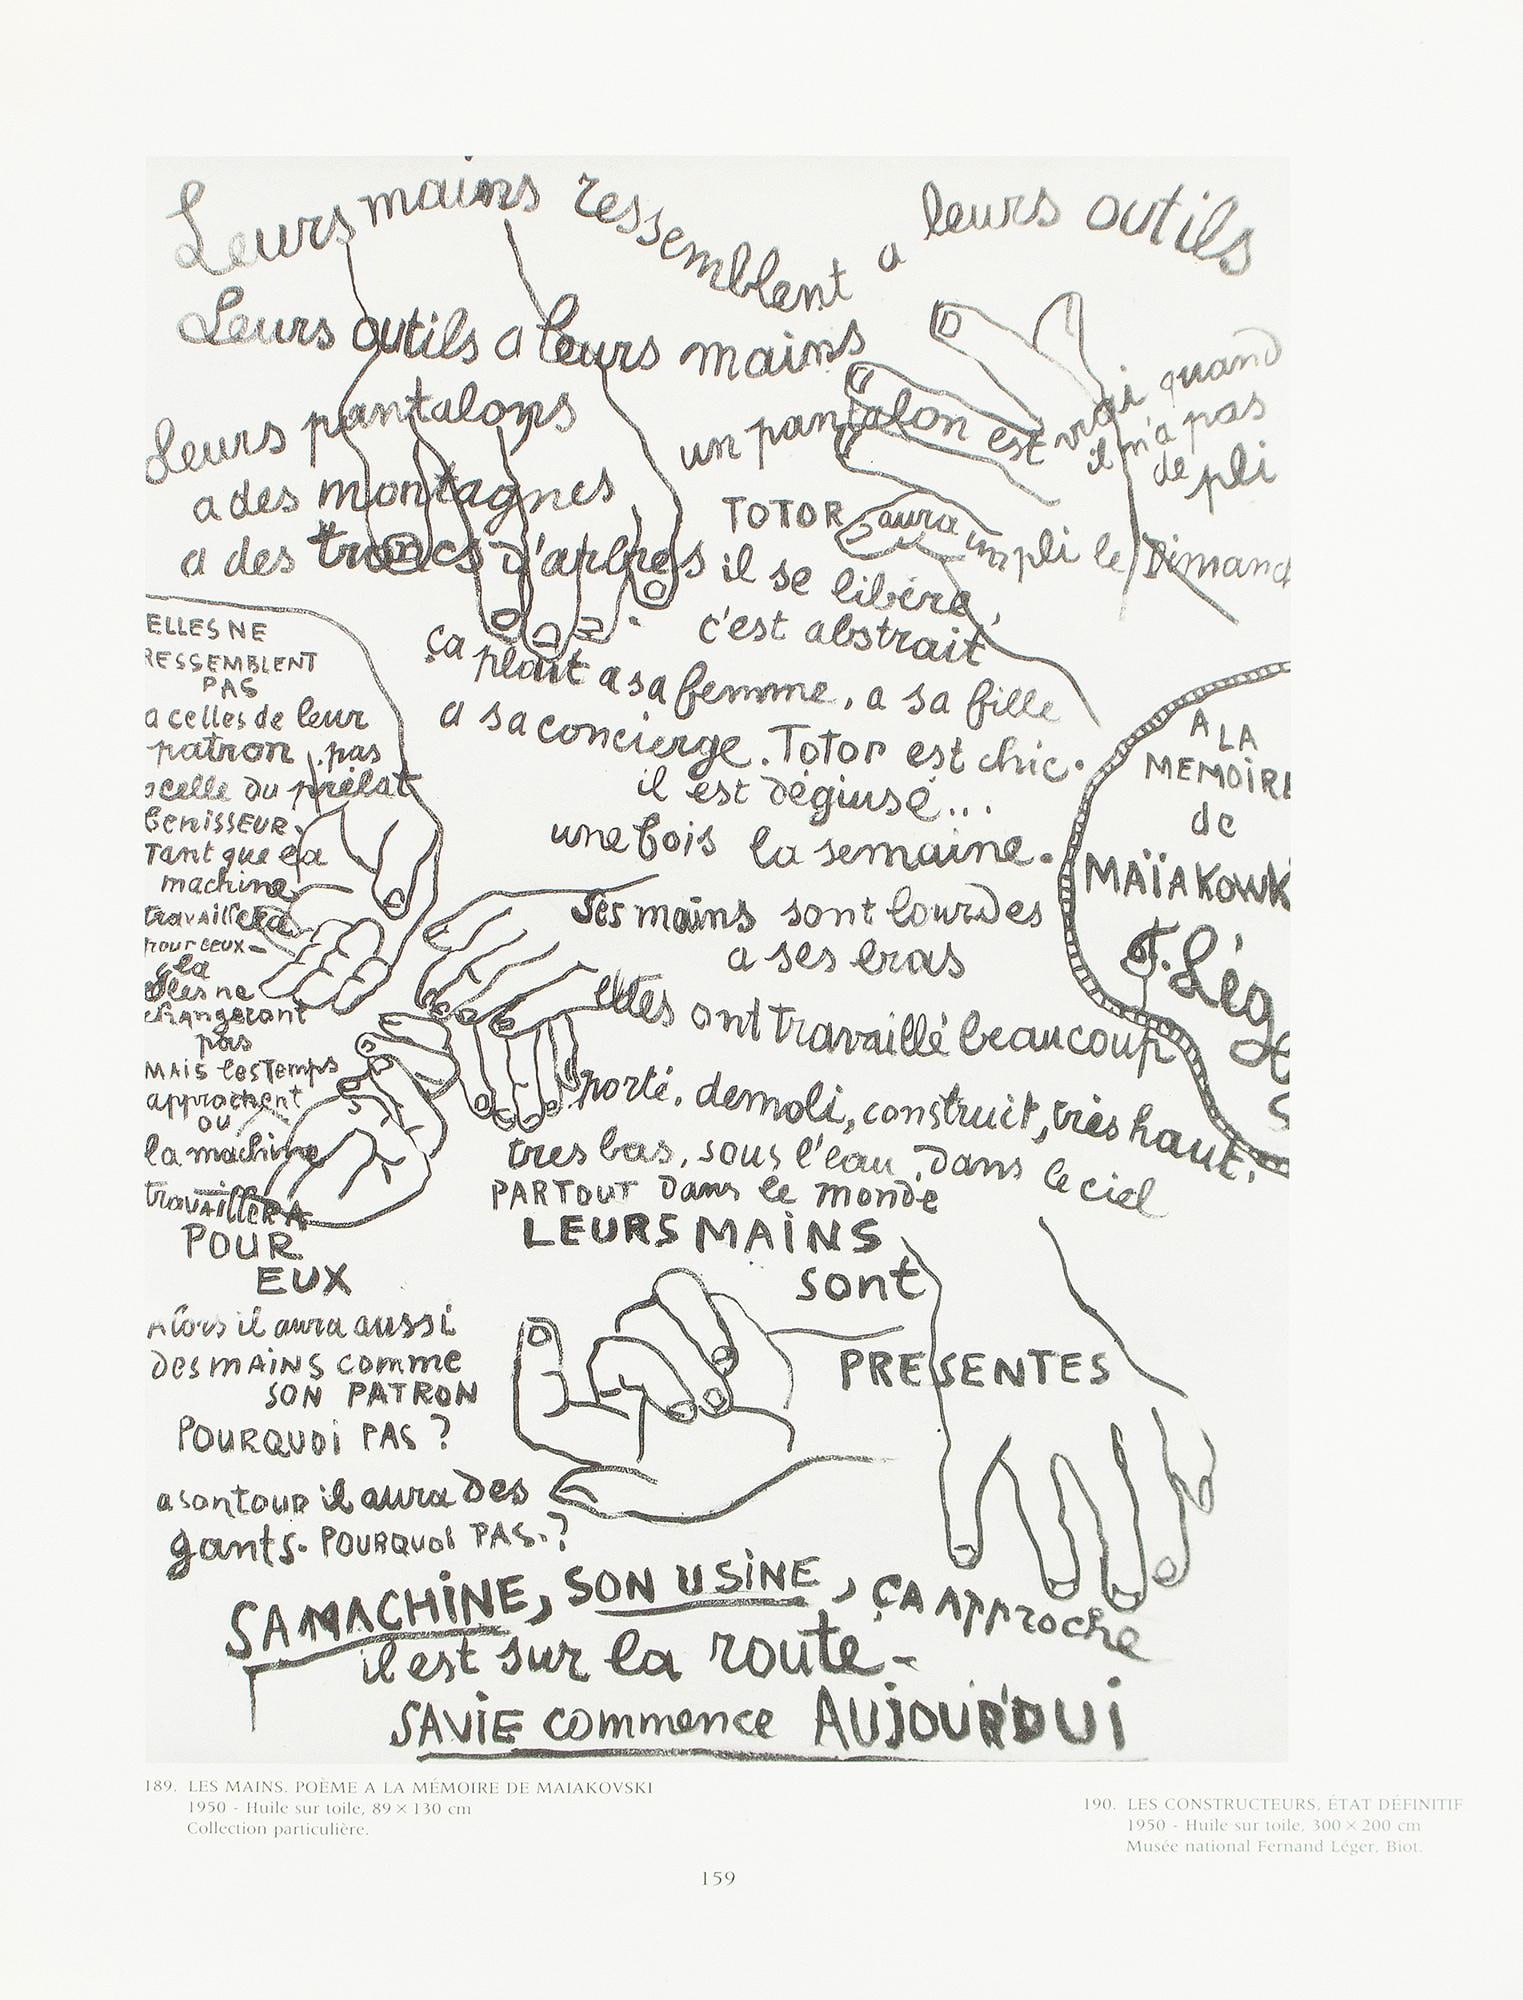 Leurs mains ressemblent a leurs outils
Leurs outils a leurs mains
Leurs pantalons
a des montagnes
a des troncs d'arbres
un pantalon est vrai quand
il n'a pas
de pli
TOTOR aura un pli le Dimanc
il se libère,
c'est abstrait
ça plait a sa femme, a sa fille
a sa concierge. Totor est chic.
il est dégiusé...
une fois la semaine.
Ses mains sont lourdes
a ses bras
elles ont travaillé beaucoup
porté, demoli, construit, très haut,
tres bas, sous l'eau, dans le ciel
PARTOUT dans le monde
LEURS MAINS
sont
PRESENTES
ELLES NE
RESSEMBLENT
PAS
a celles de leur
patron, pas
celle du prélat
benisseur.
Tant que la
machine
travaillera
pour eux-
la
elles ne
changeront
pas
MAIS les Temps
approchent
OU
la machine
travaillERA
POUR
EUX
Alors il aura aussi
des MAINS comme
SON PATRON
POURQUOI PAS ?
a son tour il aura des
gants. POURQUOI PAS. ?
SA MACHINE, SON USINE, ÇA APProche
il est sur la route -
SA VIE commence AUJOURD'UI
A LA
MEMOIRE
de
MAÏAKOWK
F. Lég
189. LES MAINS. POÈME A LA MÉMOIRE DE MAIAKOVSKI
1950 - Huile sur toile, 89 × 130 cm
Collection particulière.
190. LES CONSTRUCTEURS, ÉTAT DÉFINITIF
1950 - Huile sur toile, 300 × 200 cm
Musée national Fernand Léger, Biot.
159